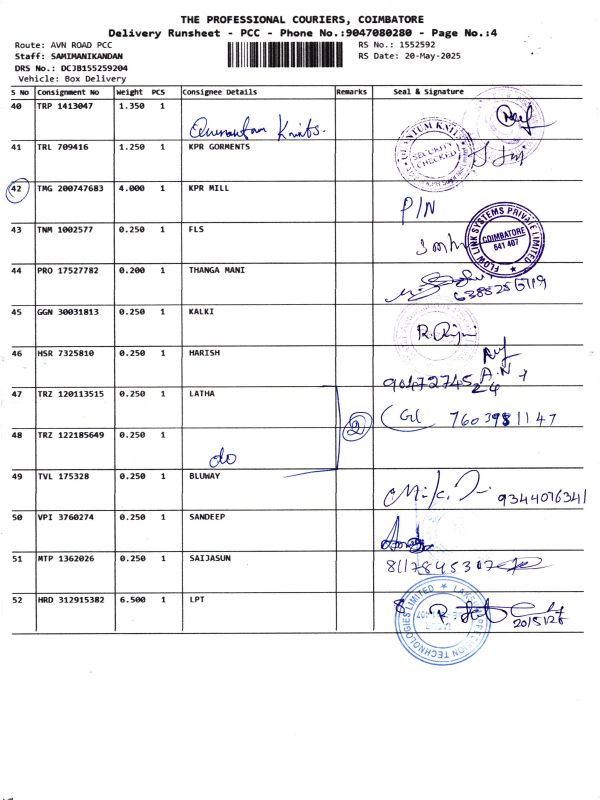 THE PROFESSIONAL COURIERS, COIMBATORE
Delivery Runsheet - PCC - Phone No.:9047080280 - Page No.:4
Route: AVN ROAD PCC
Staff: SAMIMANIKANDAN
DRS No.: DCJB155259204
Vehicle: Box Delivery
RS No.: 1552592
RS Date: 20-May-2025
S No Consignment No Weight PCS Consignee Details Remarks Seal & Signature
40 TRP 1413047 1.350 1
Quantum Knits.
41 TRL 709416 1.250 1 KPR GORMENTS
QUANTUM KNITS
SECURITY CHECKED
42 TMG 200747683 4.000 1 KPR MILL P/N
43 TNM 1002577 0.250 1 FLS
FLOW LINK SYSTEMS PRIVATE LIMITED
COIMBATORE
641 407
44 PRO 17527782 0.200 1 THANGA MANI
45 GGN 30031813 0.250 1 KALKI
46 HSR 7325810 0.250 1 HARISH
47 TRZ 120113515 0.250 1 LATHA
2
7603981147
48 TRZ 122185649 0.250 1
do
49 TVL 175328 0.250 1 BLUWAY
9344076341
50 VPI 3760274 0.250 1 SANDEEP
51 MTP 1362026 0.250 1 SAIJASUN
8117845307
52 HRD 312915382 6.500 1 LPT